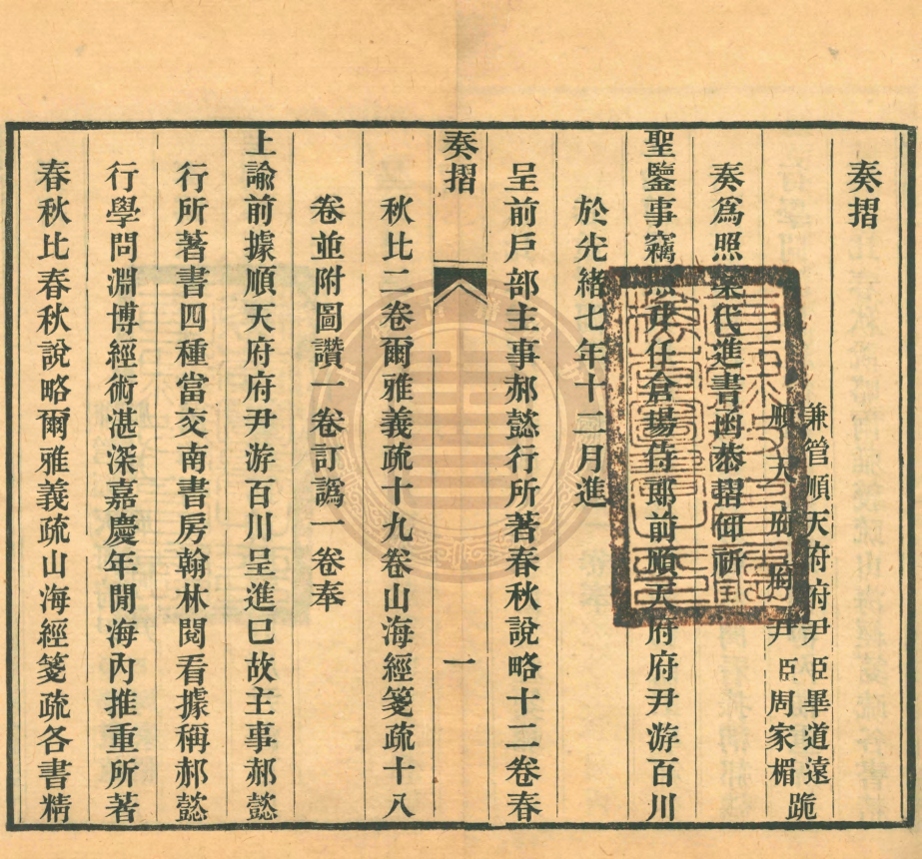 奏摺
兼管順天府府尹臣畢道遠
順天府府尹臣周家楣
跪
奏爲照案代進書函恭摺仰祈
聖鑒事竊任倉場侍郎前順天府府尹游百川
於光緒七年十二月進
呈前戶部主事郝懿行所著春秋說略十二卷春
奏摺
一
秋比二卷爾雅義疏十九卷山海經箋疏十八
卷並附圖讚一卷訂譌一卷奉
上諭前據順天府府尹游百川呈進已故主事郝懿
行所著書四種當交南書房翰林閱看據稱郝懿
行學問淵博經術湛深嘉慶年閒海內推重所著
春秋比春秋說略爾雅義疏山海經箋疏各書精